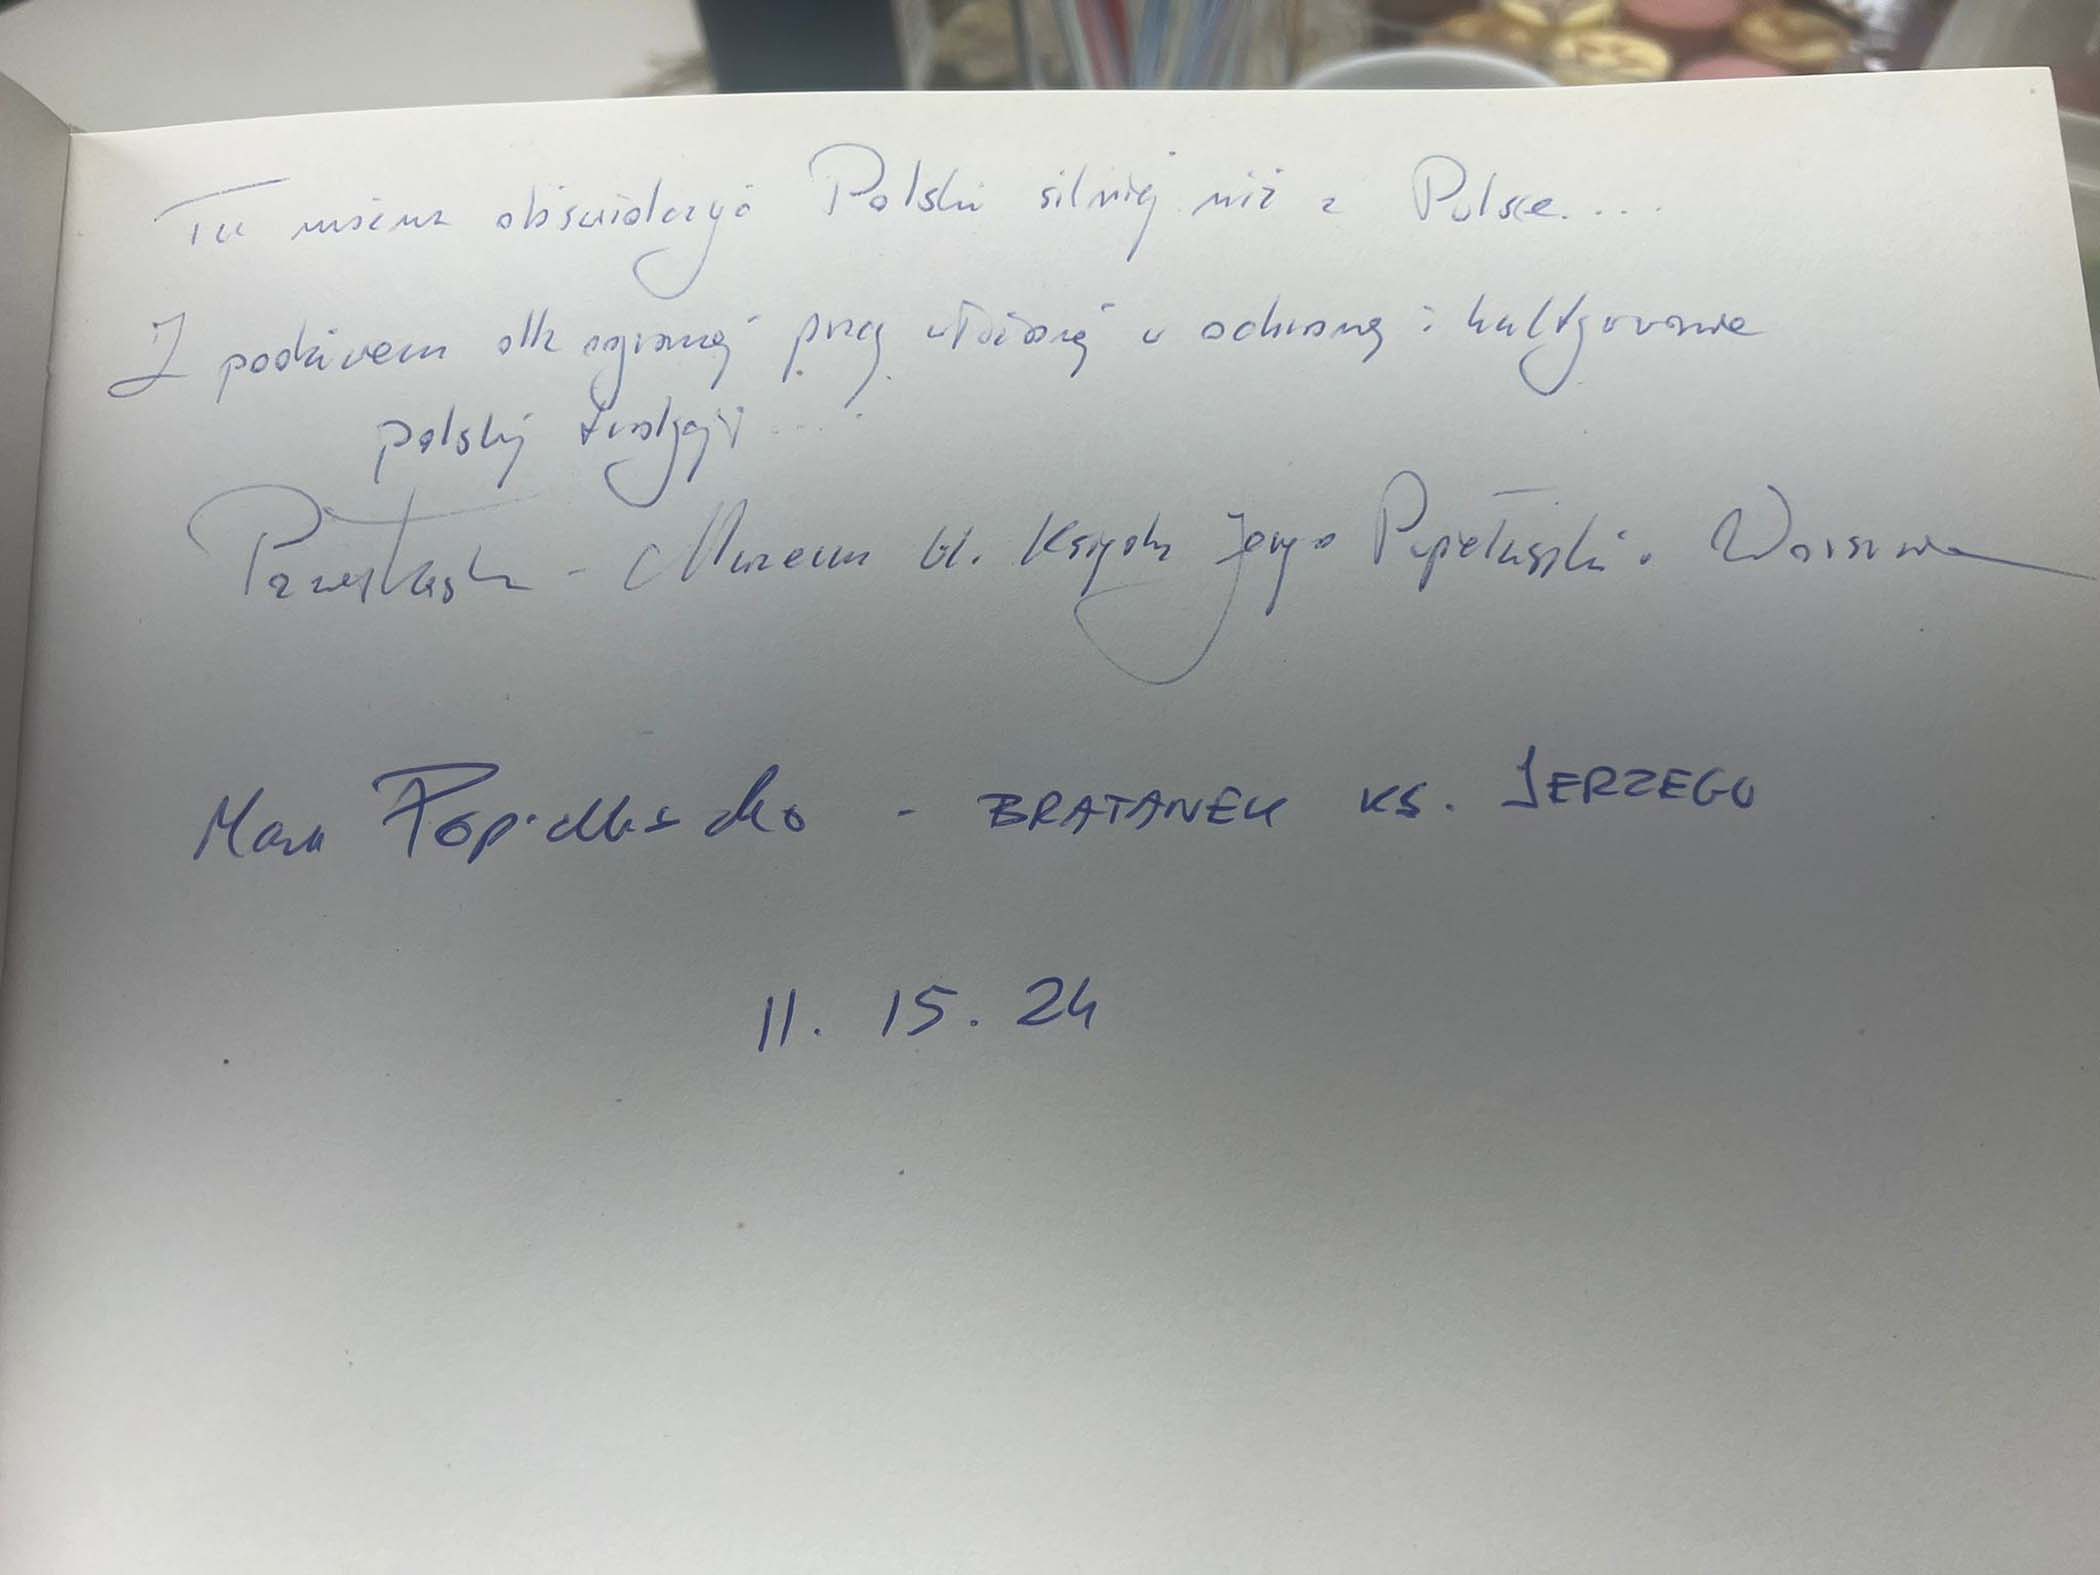 Tu można doświadczyć Polski silniej niż w Polsce....
Z podziwem dla ogromnej pracy włożonej w ochronę i kultywowanie
polskiej tradycji...
Muzeum bł. Księdza Jerzego Popiełuszki. Warszawa
Marek Popiełuszko - BRATANEK KS. JERZEGO
11. 15. 24